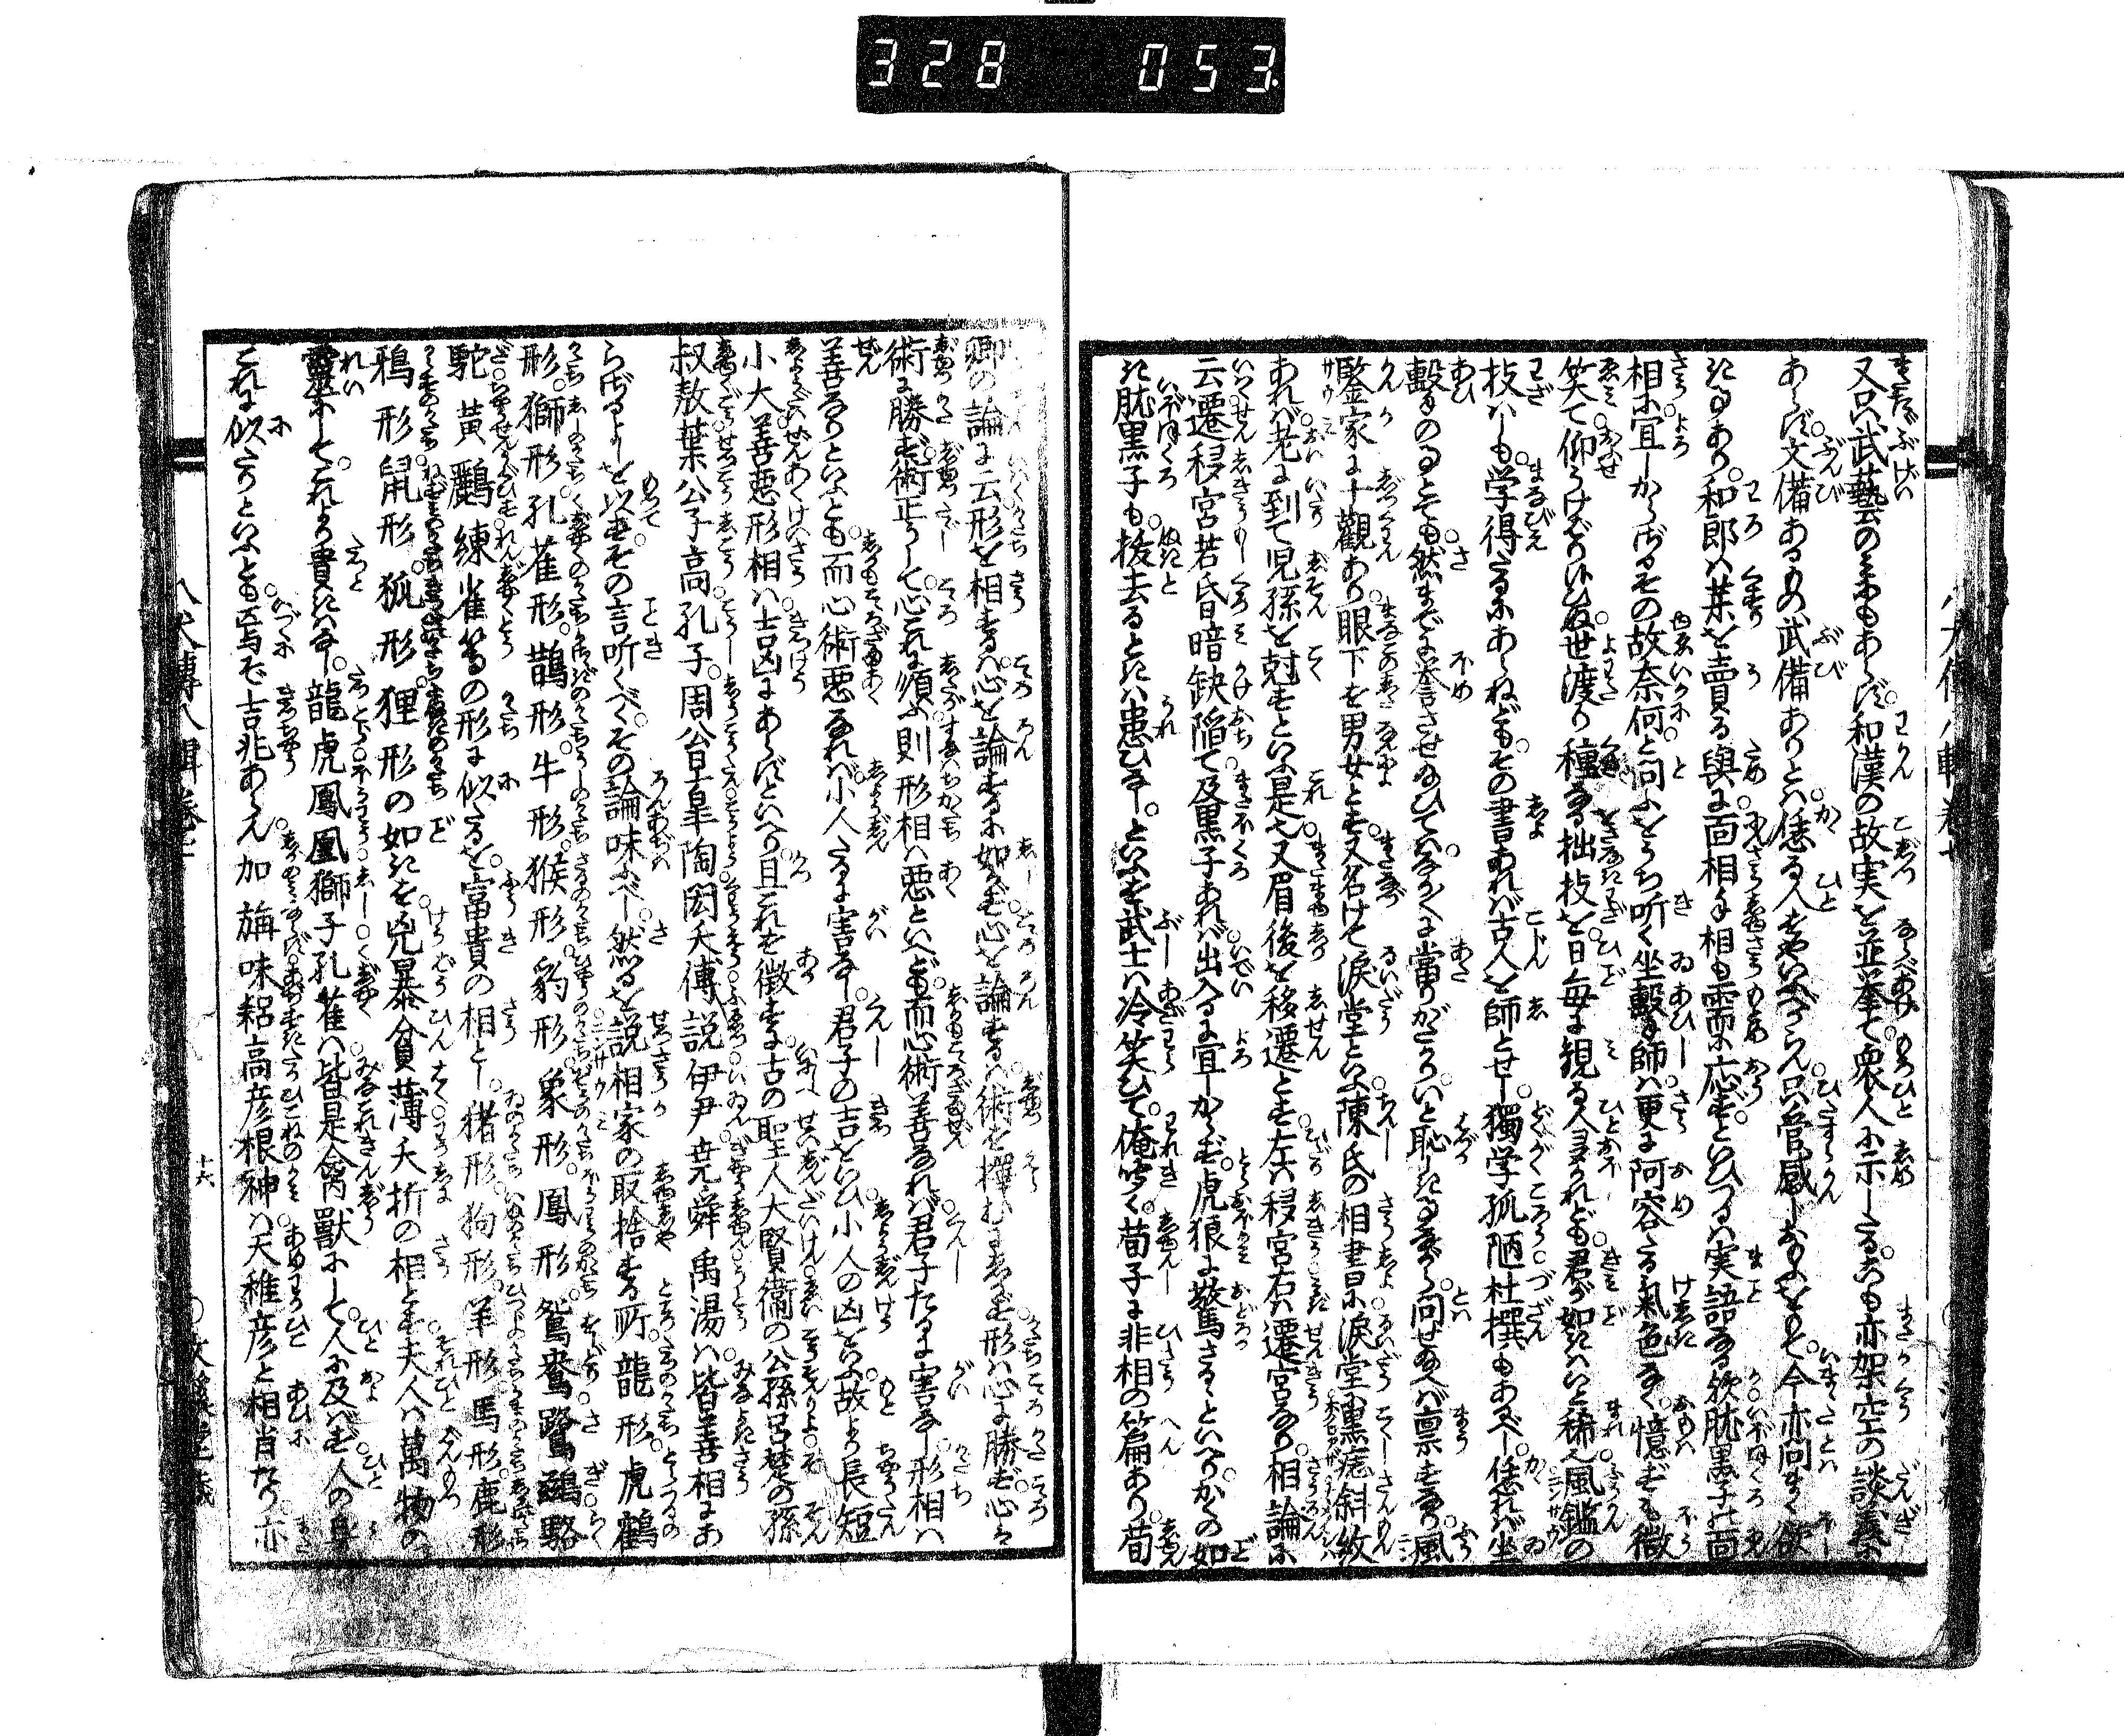 328 053
又只武藝のみにもあらず。和漢の故実を並挙て。衆人に示したる。はも亦架空の談義に
あらず。文備あるもの武備ありとは。倭る人をやいふべからん。只管感しおもふをもて。今亦問まく欲
きるあり。和郎は某を賣る與に。面相を相も需に応ずといひつるは実語なる歟。肬黒子の面
相に宜しからざるその故奈何と問ふをうち听く坐撃師は更に阿容たる氣色なく。憶ずも微
笑て仰うけ給はりぬ。世渡り種なる拙技を。日毎に観る人多かれども。君が如きはいと稀也。風鑑の
技はしも。学得たるにあらねども。その書あれば古人を師とせし。獨学孤陋杜撰もあるべし。恁れば坐
撃のるとても。然までに誉させ給ひては。なか〳〵に當りがたかり。いと恥しきるながら。問せ給へば稟すなり。風
鑒家に十觀あり。眼下を男女とす。又名けて涙堂といふ。陳氏の相書に。涙堂に黒痣斜紋
あれば。老に到て児孫を尅すといふ是也。又眉後を移遷とす。左は移宮右は遷宮なり。相論に
云。遷移宮若昏暗缺陥て。及黒子あれば。出入るに宜しからず。虎狼に驚さるゝといへり。かくの如
き肬黒子も。抜去るときは患ひなし。といふを武士は冷笑ひて。俺聞く。荀子に非相の篇あり。荀
卿の論に云。形を相するは。心を論するに如ず。心を論するは。術を擇むにしかず。形は心に勝ず。心は
術に勝ず。術正うして。心これに順ふ。則形相は悪といへども。而心術善なれば。君子たるに害なし。形相は
善なりといふとも。而心術悪なれば。小人たるに害なし。君子の吉をいひ。小人の凶をいふ。故より長短
小大。善悪形相は。吉凶にあらずといへり。且これを徴するに。古の聖人大賢。衞の公孫呂。楚の孫
叔敖。葉公子高。孔子。周公旦。皐陶。閎夭。傅説。伊尹。尭舜禹湯は。皆善相にあ
らざるよしを以す。その言听くべく。その論味ふべし。然るを説相家の取捨する所。龍形。虎鶴
形。獅形。孔雀形。鵲形。牛形。猴形。豹形。象形。鳳形。鴛鴦鷺鷁駱
駝。黄鸝練雀等の形に似たるを。富貴の相とし。猪形。狗形。羊形。馬形。鹿形
鴉形。鼠形。狐形。狸形の如きを。兇暴貧薄夭折の相とす。夫人は萬物の
靈にして。これより貴きはなし。龍虎鳳凰獅子孔雀は。皆是禽獣にして。人に及ばず。人の身
これに似たりといふとも。焉ぞ吉兆あらん。加旃味耜高彦根神は。天稚彦と相肖たり。亦
八犬傳八輯巻七
十六